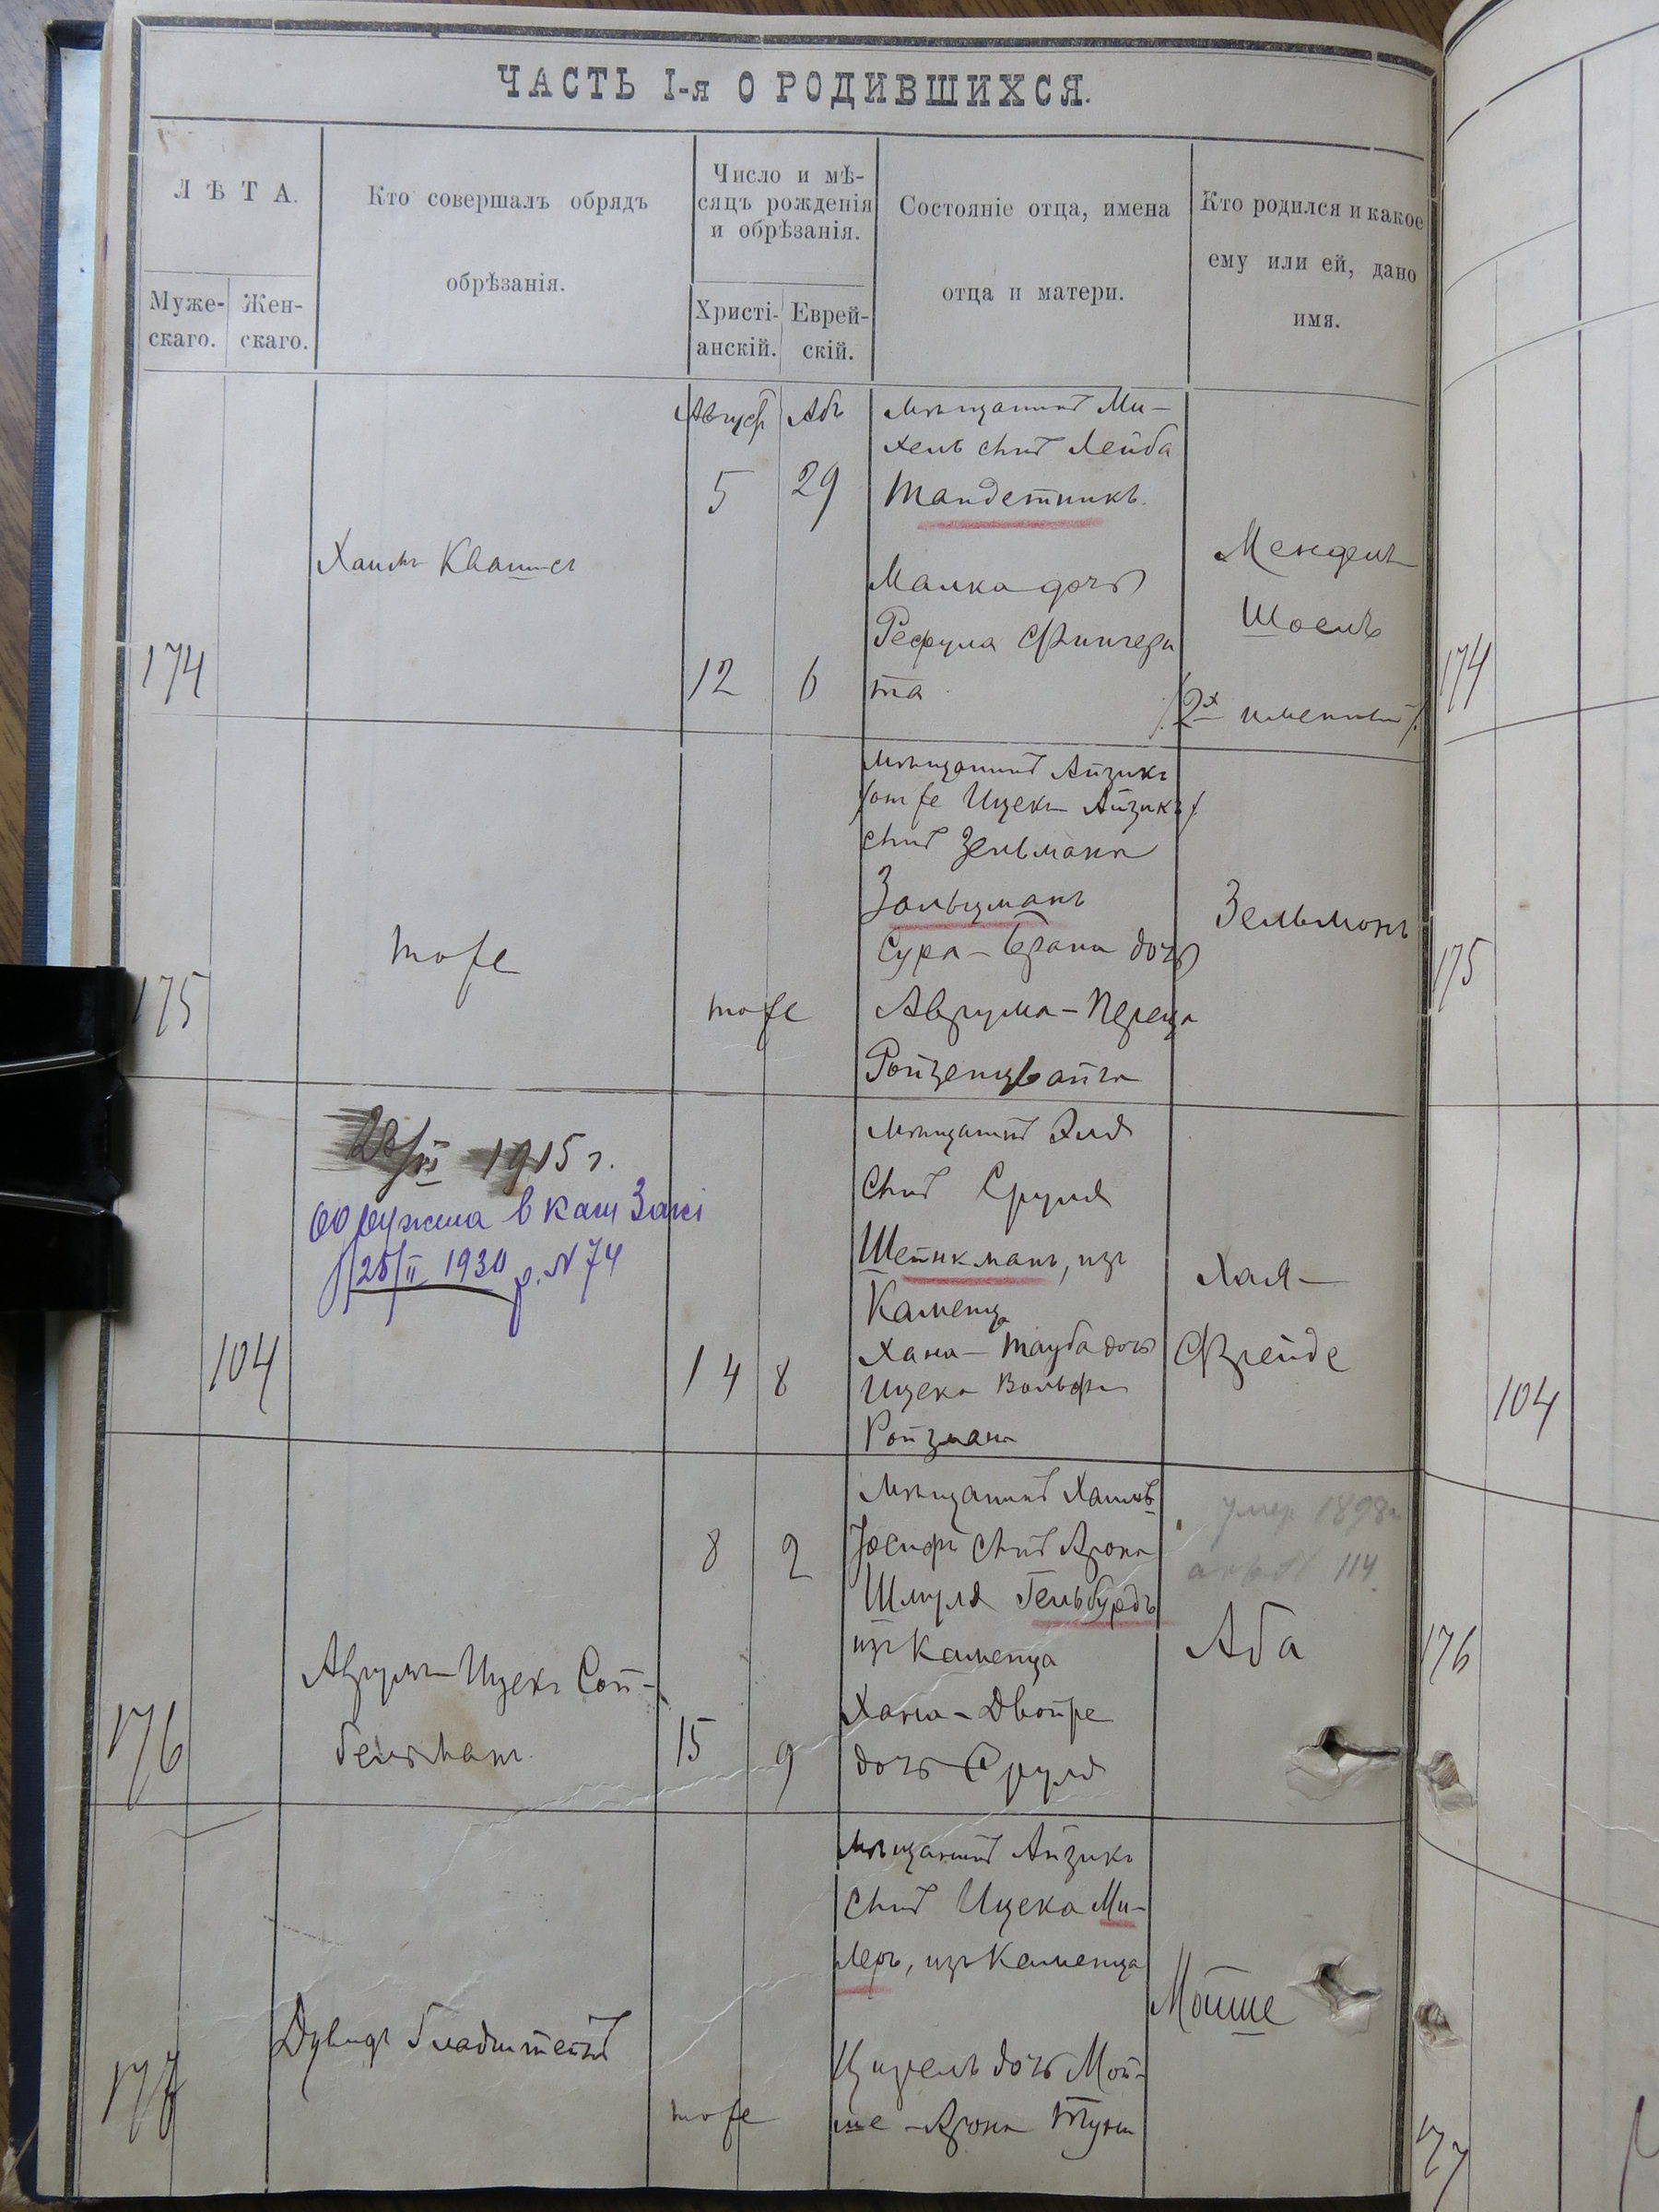 ЧАСТЬ I-я О РОДИВШИХСЯ.
ЛѢТА.
Муже-
скаго.
Жен-
скаго.
Кто совершалъ обрядъ
обрѣзанія.
Число и мѣ-
сяцъ рожденія
и обрѣзанія.
Христі-
анскій.
Еврей-
скій.
Состояніе отца, имена
отца и матери.
Кто родился и какое
ему или ей, дано
имя.
174
Хаимъ
Август
5
12
Абъ
29
6
мѣщанинъ Ми-
хель сынъ Лейба
Тандетникъ.
Малка дочь
Рефула
та
Мендель
Шоель
/2х именный/.
174
175
тоже
тоже
мѣщанинъ Айзикъ
/онъ же Ицекъ Айзикъ/
сынъ Зельмана
Зальцманъ
Сура-Брана дочь
Аврума-Переца
Ройзенцвайга
Зельманъ
175
1915 г.
1930 р. N 74
104
14
8
мѣщанинъ Эля
сынъ Сруля
Шейнкманъ, изъ
Каменца
Хана-Тауба дочь
Ицека Вольфа
Ройзмана
Хая-
Фрейде
104
176
Аврумъ-Ицекъ Сой-
бельманъ.
8
15
2
9
мѣщанинъ Хаимъ
Іосифъ сынъ Арона
Шмуля Гельбурдъ
изъ Каменца
Хана-Двойре
дочь Сруля
умер 1898г
114
Аба
176
177
Дувидъ Гладштейнъ
тоже
мѣщанинъ Айзикъ
сынъ Ицека Ми-
леръ, изъ Каменца
Цирель дочь Мой-
ше-Арона
Мойше
177